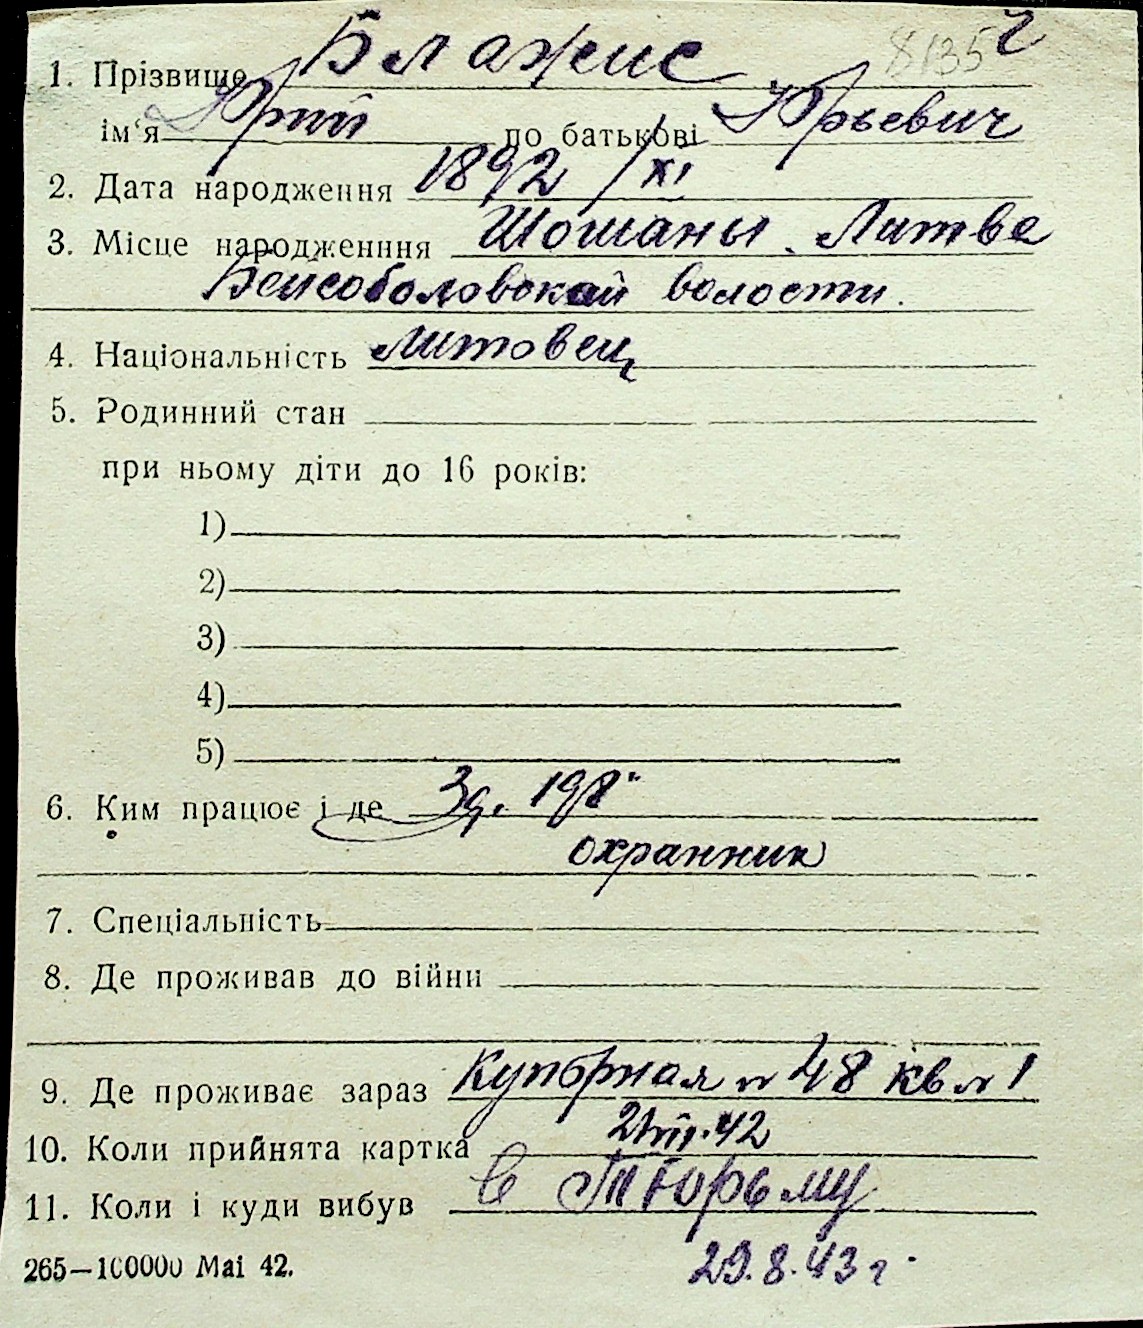 8135 2
1. Прізвище Блажис
ім'я Юрий по батькові Юрьевич
2. Дата народження 1892 /XI
3. Місце народженння Шошаны. Литве
Бейсоболовской волости.
4. Національність литовец
5. Родинний стан
при ньому діти до 16 років:
1)
2)
3)
4)
5)
6. Ким працює і де Зд. 198
охранник
7. Спеціальність
8. Де проживав до війни
9. Де проживає зараз Купорная № 48 кв № 1
10. Коли прийнята картка 21/VII.42
11. Коли і куди вибув в Тюрьму
265—100000 Маі 42.
29.8.43 г.